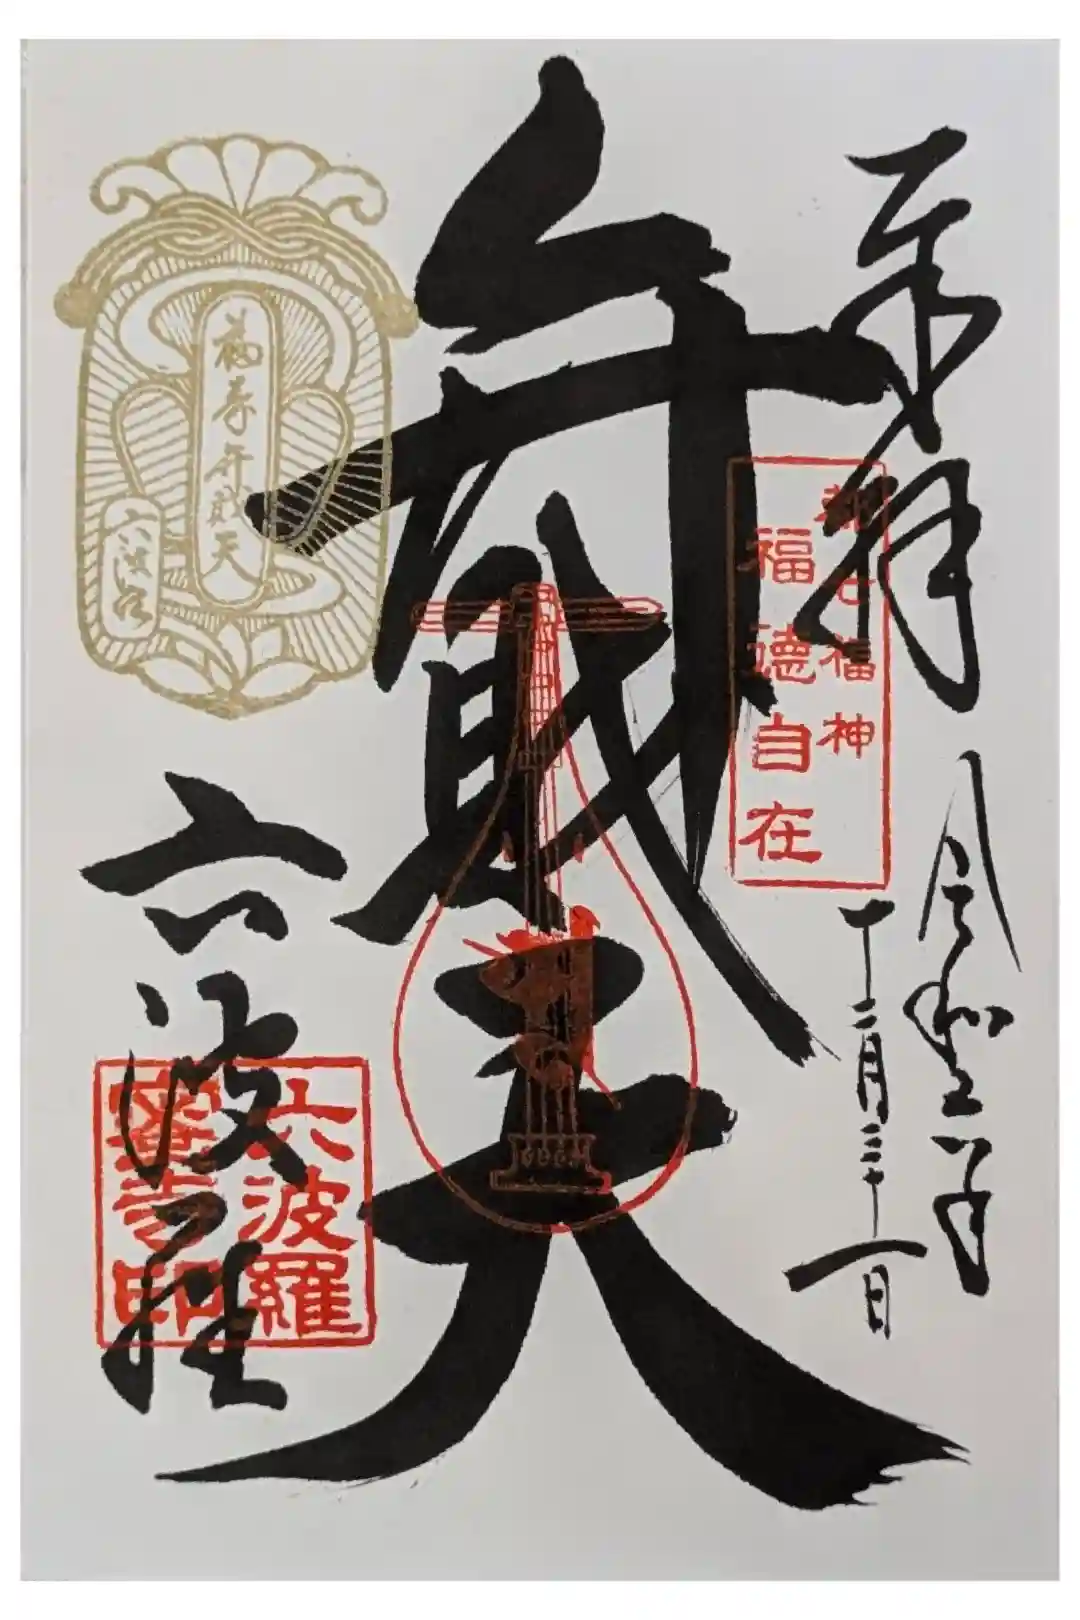 奉拝
令和年
十二月三十一日
都七福神
福徳自在
弁財天
福寿弁財天
六波羅
六波羅
六波羅
蜜寺印